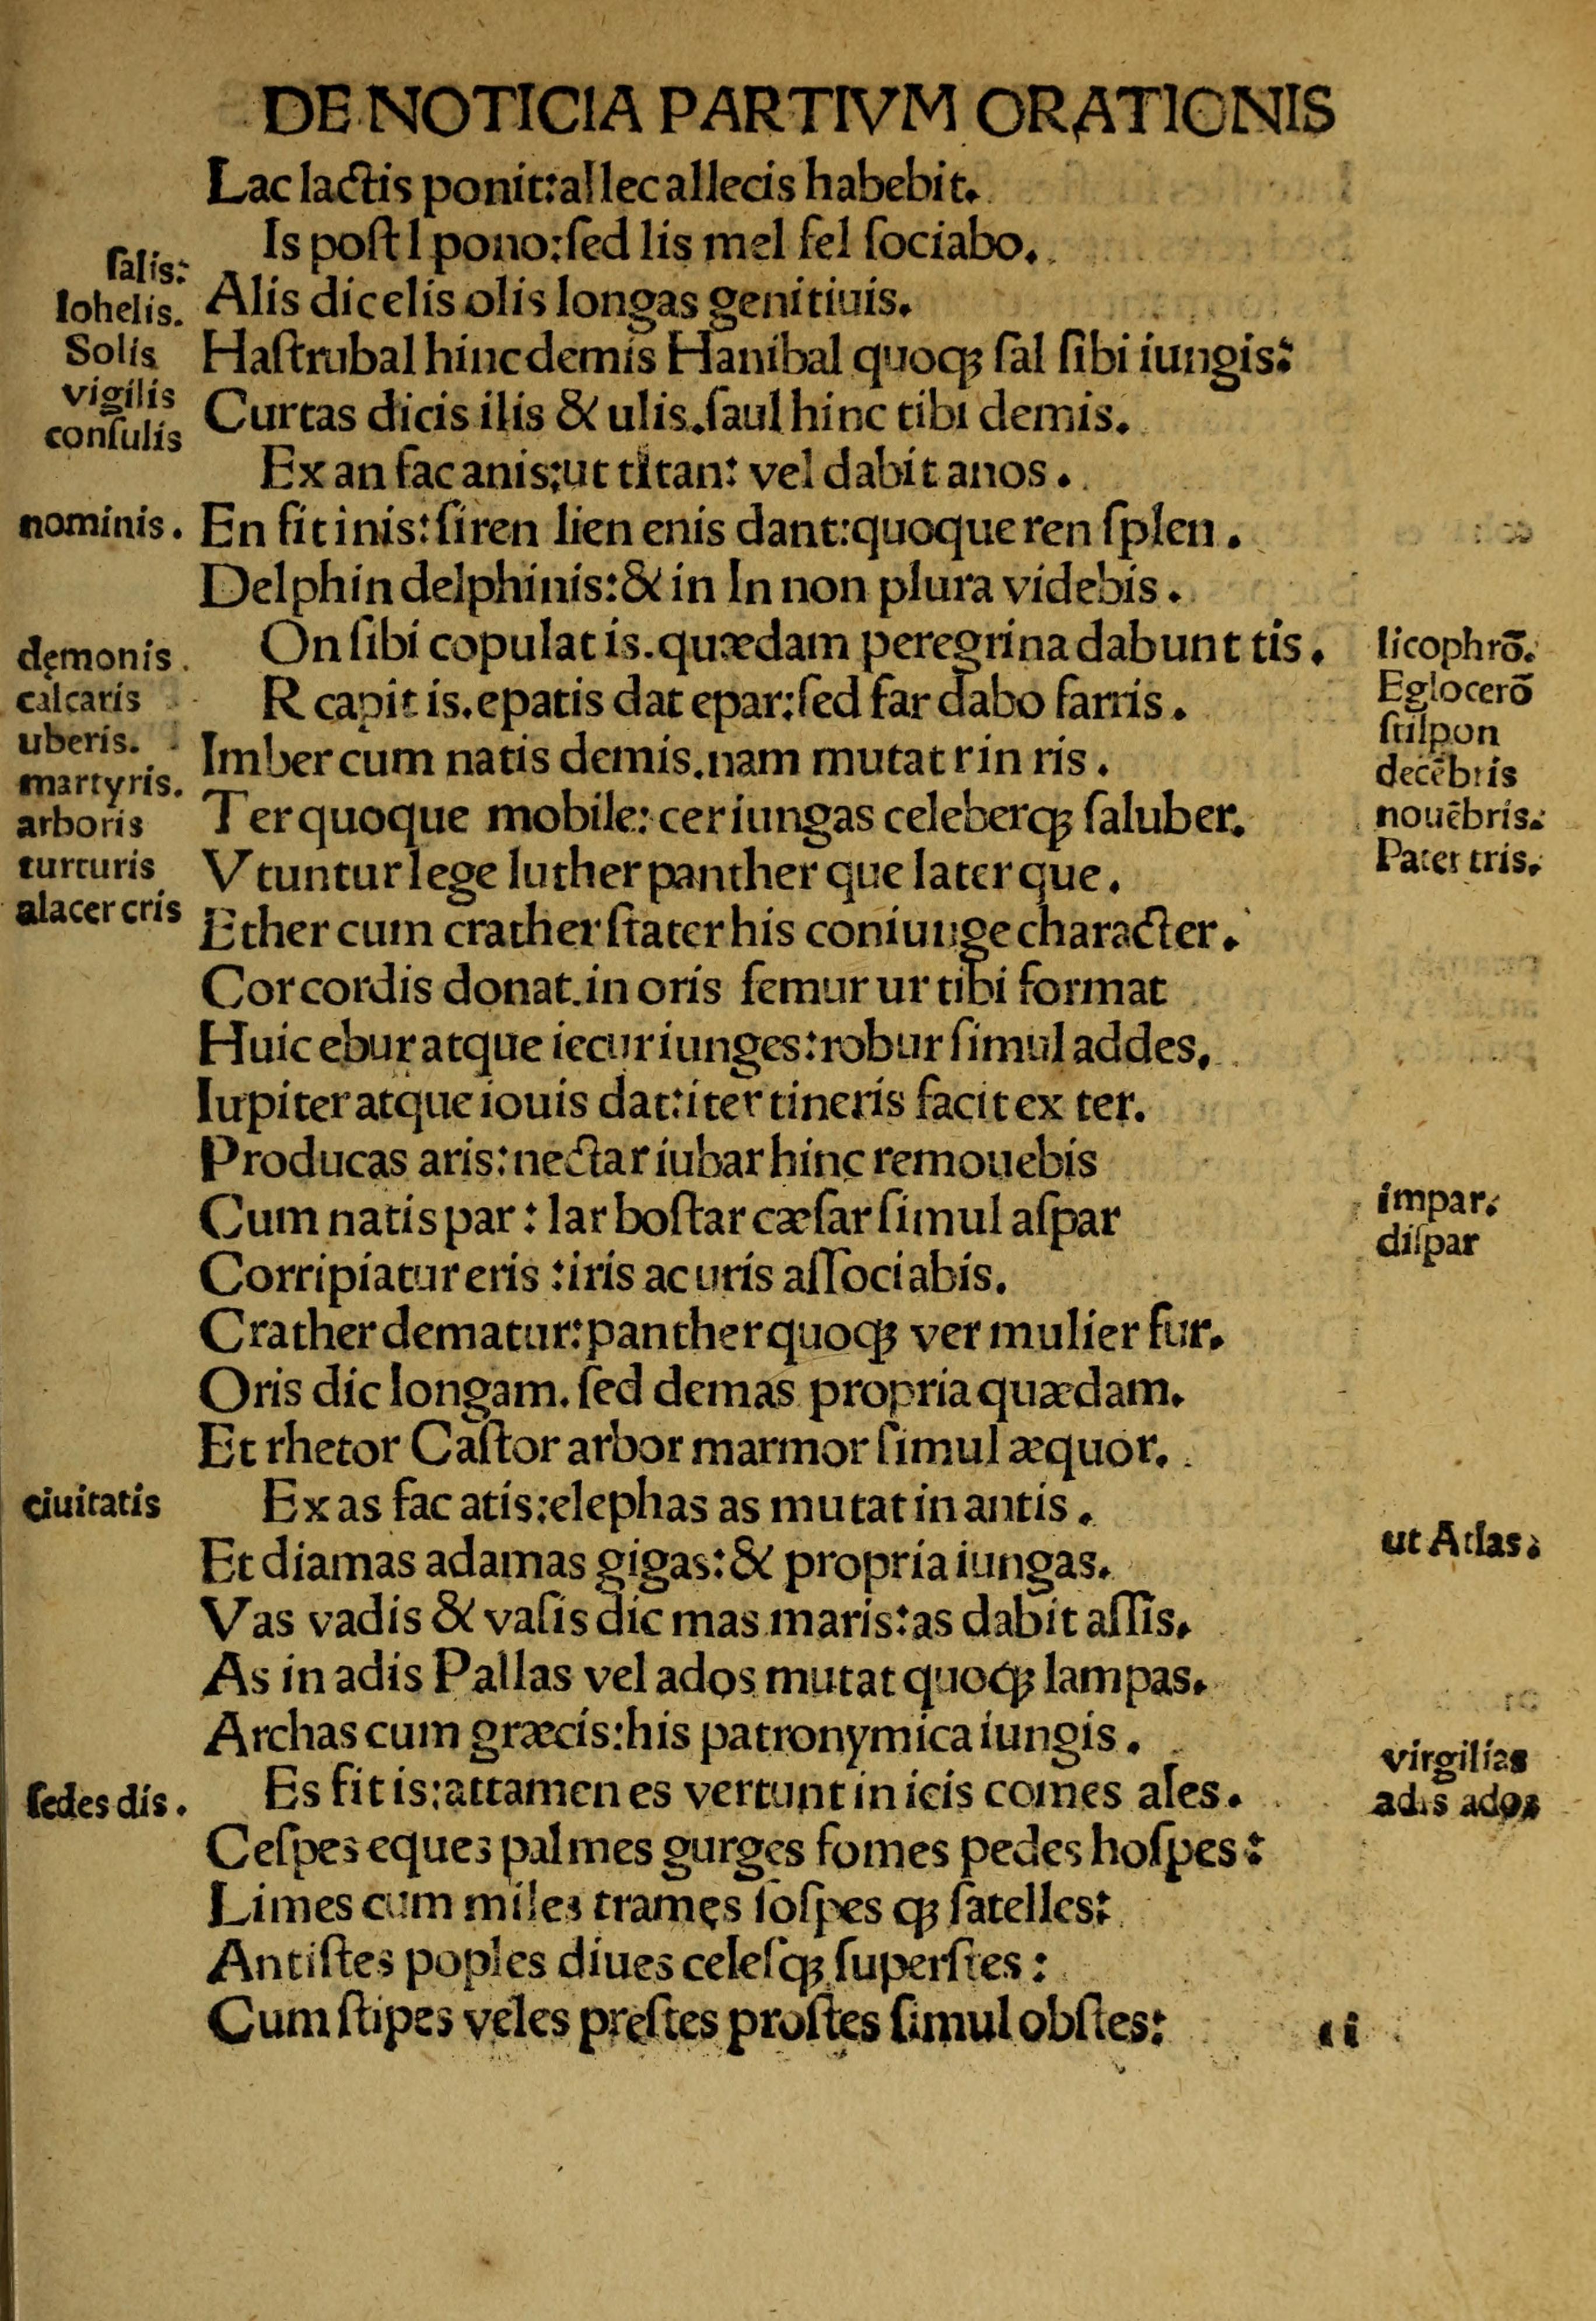 DE NOTICIA PARTIVM ORATIONIS
Lac lactis ponit:allec allecis habebit.
Is poſt l pono:ſed lis mel fel ſociabo.
ſalis:
Iohelis.
Solis
vigilis
conſulis
Alis dic elis olis longas genitiuis.
Haſtrubal hinc demis Hanibal quoqꝫ ſal ſibi iungis:
Curtas dicis ilis & ulis.ſaul hinc tibi demis.
Ex an fac anis:ut titan: vel dabit anos.
nominis.
En fit inis:ſiren lien enis dant:quoque ren ſplen.
Delphin delphinis:& in In non plura videbis.
On ſibi copulat is.quædam peregrina dabunt tis.
dęmonis.
calcaris
uberis.
martyris.
arboris
turturis
alacer cris
licophrō.
Eglocerō
ſtilpon
decēbris
nouēbris.
Pater tris.
R capit is.epatis dat epar:ſed far dabo farris.
Imber cum natis demis.nam mutat r in ris.
Ter quoque mobile: cer iungas celeberqꝫ ſaluber.
Vtuntur lege luther panther que later que.
Ether cum crather ſtater his coniunge character.
Cor cordis donat.in oris femur ur tibi format
Huic ebur atque iecur iunges:robur ſimul addes.
Iupiter atque iouis dat:iter tineris facit ex ter.
Producas aris:nectar iubar hinc remouebis
Cum natis par: lar boſtar cæſar ſimul aſpar
impar.
diſpar
Corripiatur eris :iris ac uris aſſociabis.
Crather dematur:panther quoqꝫ ver mulier fur.
Oris dic longam.ſed demas propria quædam.
Et rhetor Caſtor arbor marmor ſimul æquor.
ciuitatis
Ex as fac atis:elephas as mutat in antis.
ut Atlas.
Et diamas adamas gigas:& propria iungas.
Vas vadis & vaſis dic mas maris:as dabit aſſis.
As in adis Pallas vel ados mutat quoqꝫ lampas.
Archas cum græcis:his patronymica iungis.
virgilias
adis ados
ſedes dis.
Es fit is:attamen es vertunt in icis comes ales.
Ceſpes eques palmes gurges fomes pedes hoſpes:
Limes cum miles trames ſoſpes qꝫ ſatelles:
Antiſtes poples diues celeſqꝫ ſuperſtes:
Cum ſtipes veles preſtes proſtes ſimul obſtes: